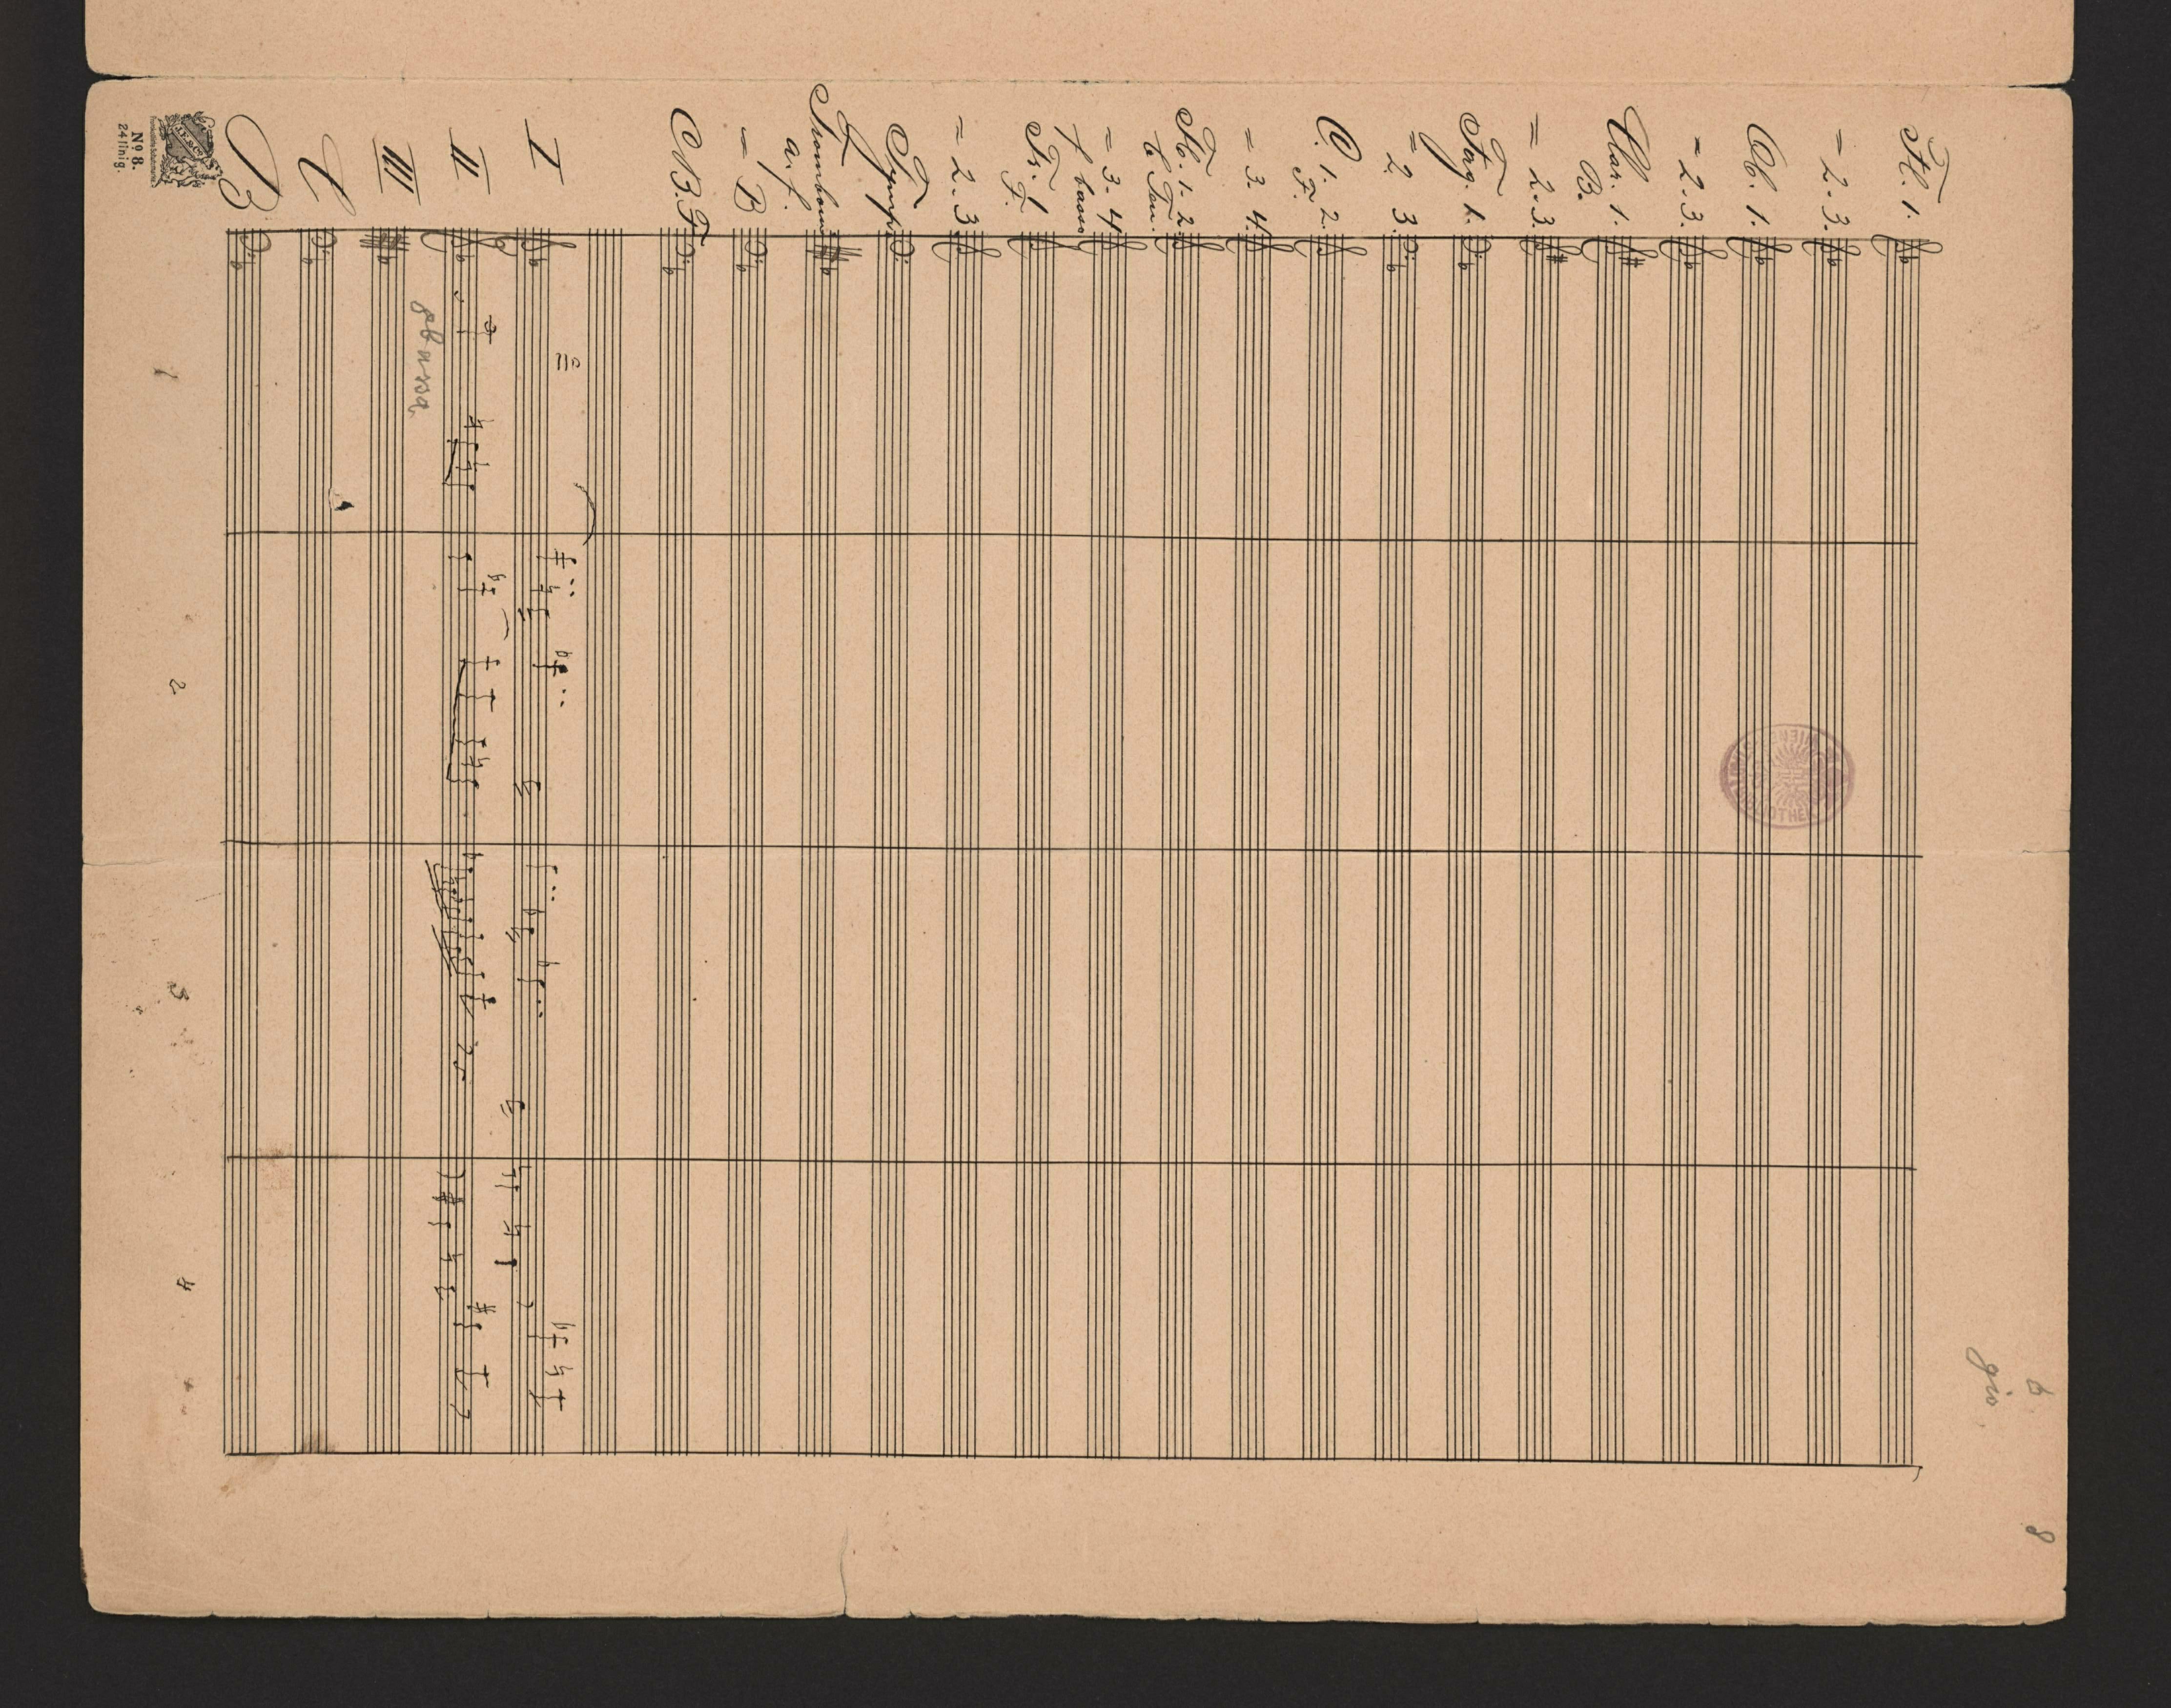 Fl. 1.
= 2. 3.
Ob. 1.
= 2. 3.
Clar. 1.
B.
= 2. 3.
Fag. 1.
= 2. 3.
C. 1. 2.
F.
= 3. 4.
Tb. 1. 2.
b Ten.
= 3. 4
f bass
Tr. 1
F.
= 2. 3.
Tymp.
a. f.
= B
CB. T
I
II
III
B
1
2
3
4
6
8
No 8.
24 linig.